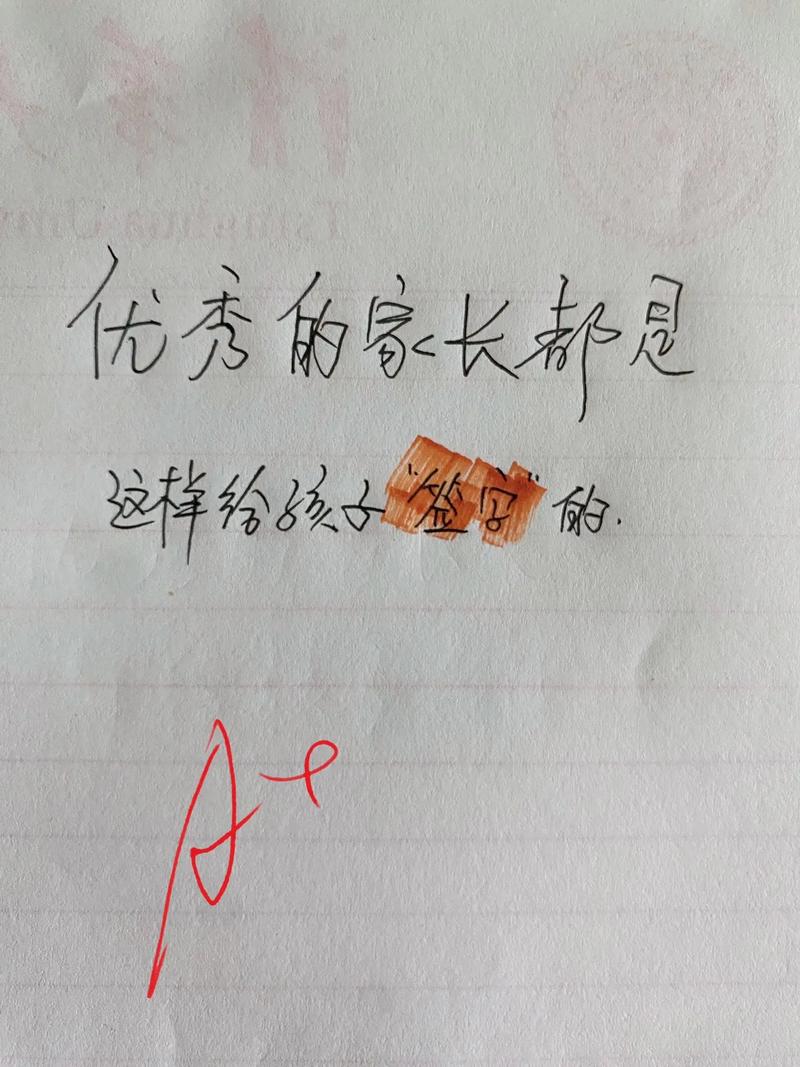 优秀的家长都是
这样给孩子“签字”的.
A+